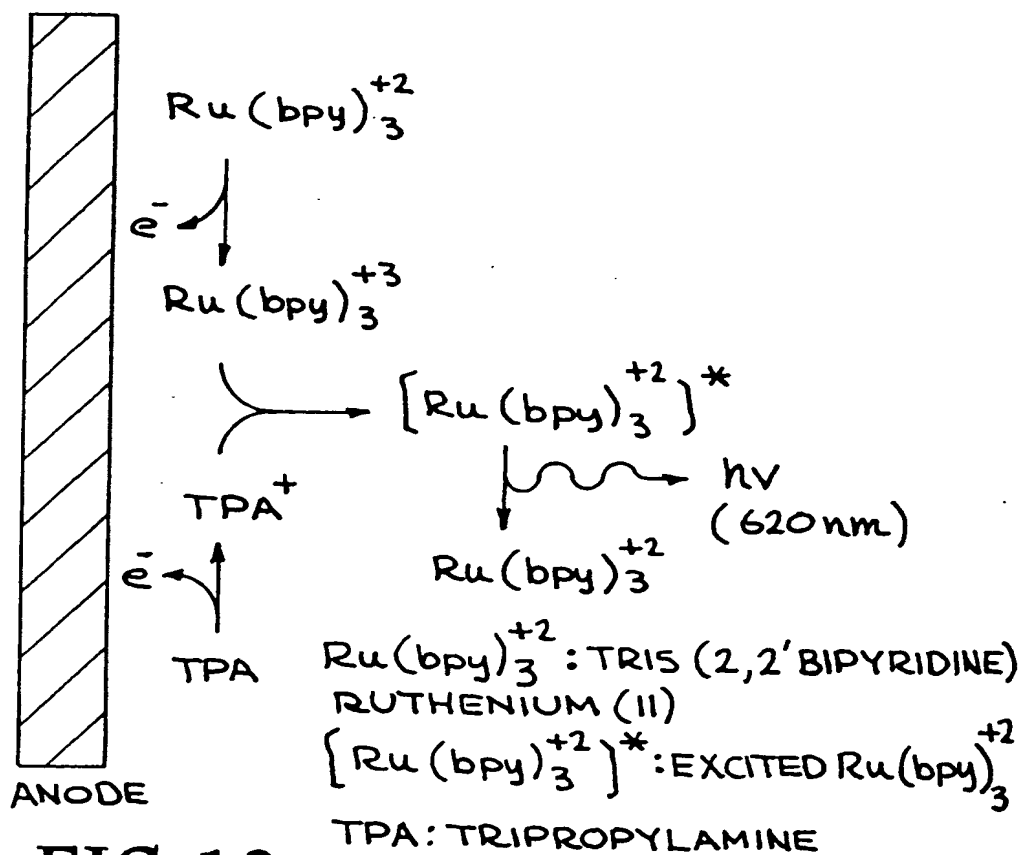 Ru(bpy)₃⁺²
e⁻
Ru(bpy)₃⁺³
[Ru(bpy)₃⁺²]*
hν
(620nm)
TPA⁺
Ru(bpy)₃⁺²
e⁻
TPA
Ru(bpy)₃⁺²: TRIS (2,2'BIPYRIDINE)
RUTHENIUM (II)
[Ru(bpy)₃⁺²]*: EXCITED Ru(bpy)₃⁺²
ANODE
TPA: TRIPROPYLAMINE